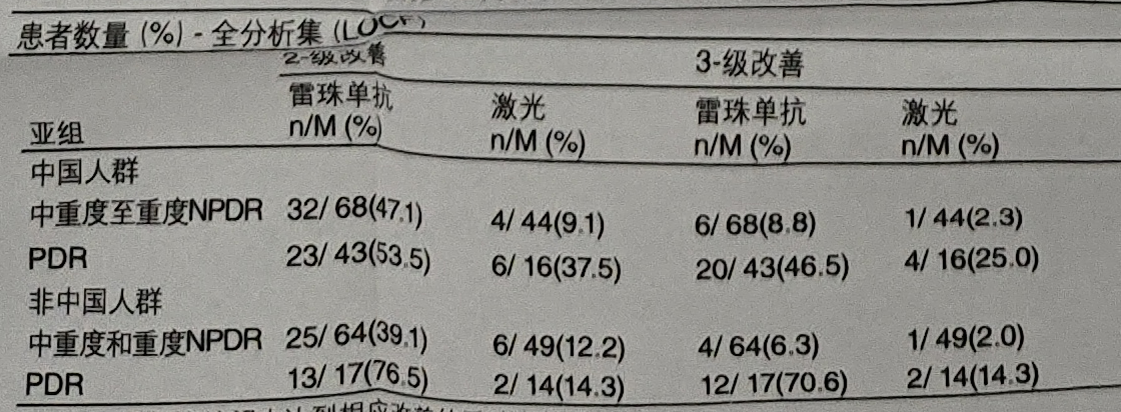 患者数量 (%) - 全分析集 (LOCF)
2-级改善 3-级改善
雷珠单抗 激光 雷珠单抗 激光
亚组 n/M (%) n/M (%) n/M (%) n/M (%)
中国人群
中重度至重度NPDR 32/ 68(47.1) 4/ 44(9.1) 6/ 68(8.8) 1/ 44(2.3)
PDR 23/ 43(53.5) 6/ 16(37.5) 20/ 43(46.5) 4/ 16(25.0)
非中国人群
中重度和重度NPDR 25/ 64(39.1) 6/ 49(12.2) 4/ 64(6.3) 1/ 49(2.0)
PDR 13/ 17(76.5) 2/ 14(14.3) 12/ 17(70.6) 2/ 14(14.3)